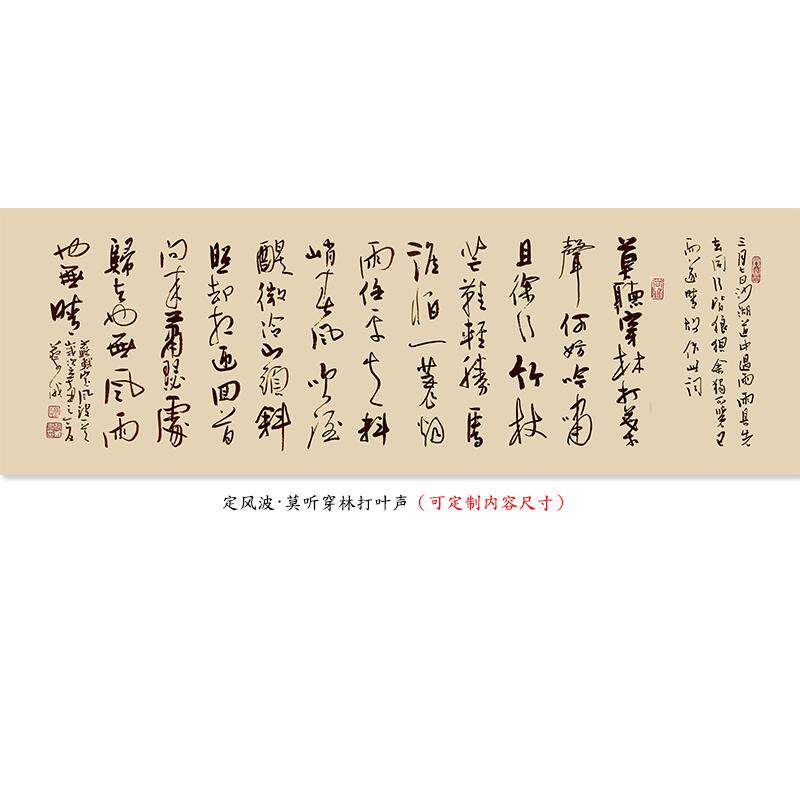 三月七日沙湖道中遇雨雨具先
去同行皆狼狽余獨不覺已
而遂晴故作此詞
莫聽穿林打葉
聲何妨吟嘯
且徐行竹杖
芒鞋輕勝馬
誰怕一蓑烟
雨任平生料
峭春風吹酒
醒微冷山頭斜
照却相迎回首
向來蕭瑟處
歸去也無風雨
也無晴
蘇軾定風波
歲次辛丑之夏
定风波·莫听穿林打叶声（可定制内容尺寸）